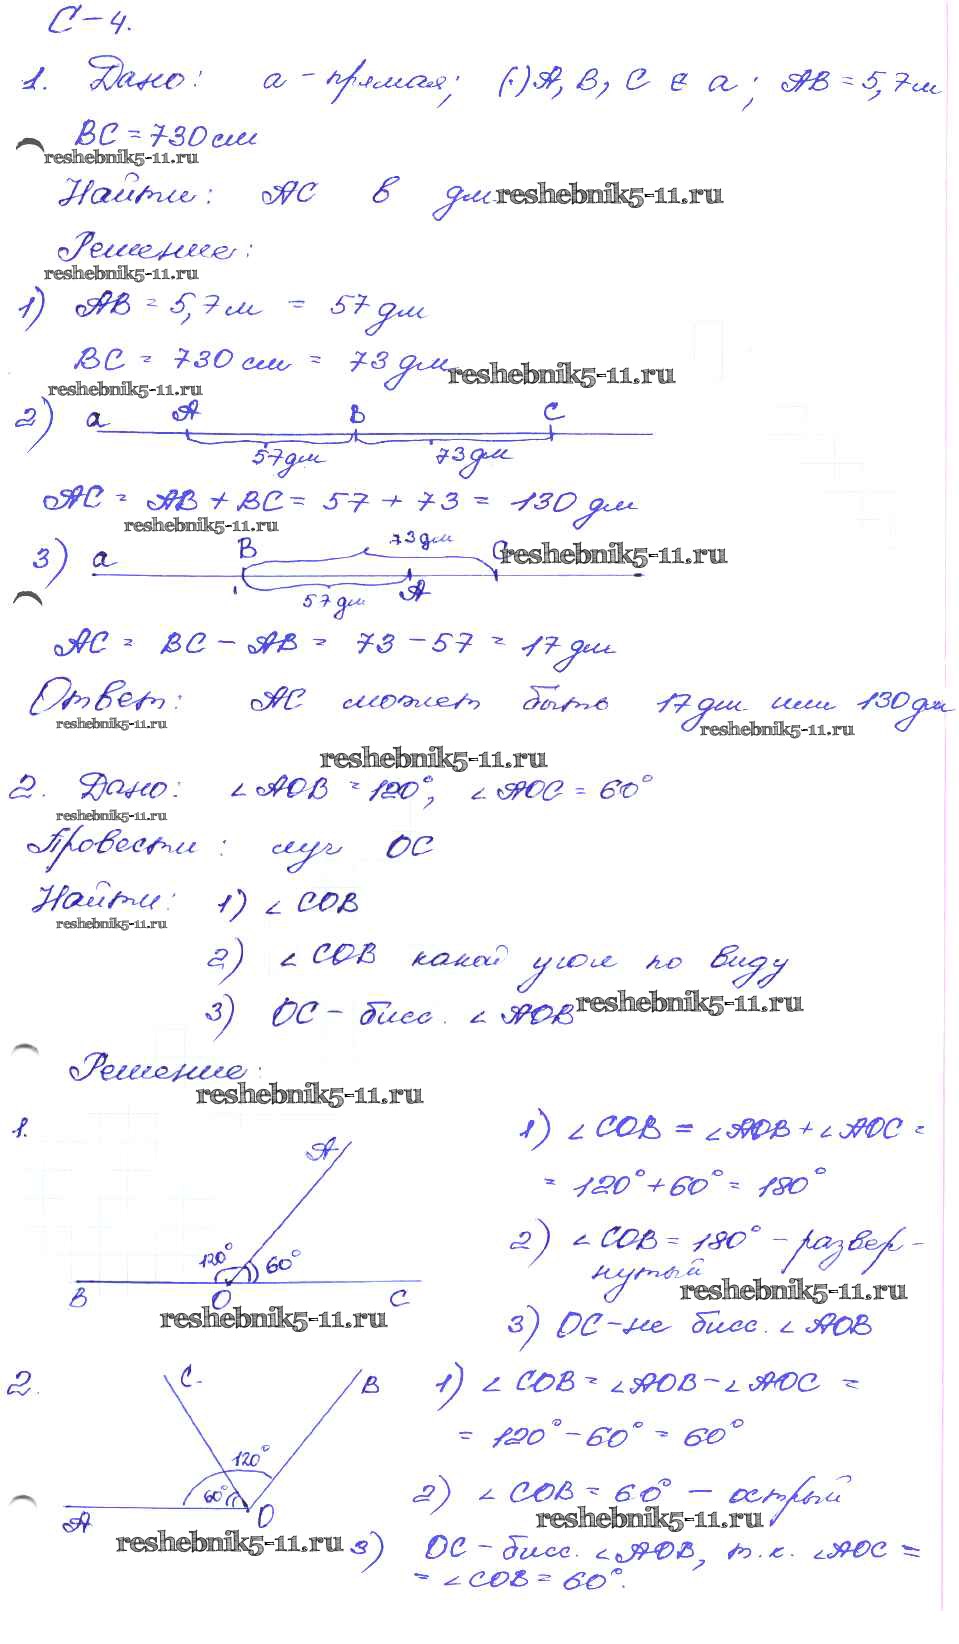 С-4.
1. Дано: а - прямая; (·)A, B, C ∈ a; AB = 5,7м
BC = 730 см
reshebnik5-11.ru
Найти: AC в дм
reshebnik5-11.ru
Решение:
reshebnik5-11.ru
1) AB = 5,7м = 57 дм
BC = 730 см = 73 дм
reshebnik5-11.ru
reshebnik5-11.ru
2) a A B C
57дм 73дм
AC = AB + BC = 57 + 73 = 130 дм
reshebnik5-11.ru
73дм
3) a B C
reshebnik5-11.ru
57дм A
AC = BC - AB = 73 - 57 = 17 дм
Ответ: AC может быть 17дм или 130дм
reshebnik5-11.ru
reshebnik5-11.ru
reshebnik5-11.ru
2. Дано: ∠AOB = 120°, ∠AOC = 60°
reshebnik5-11.ru
Провести: луч OC
Найти: 1) ∠COB
reshebnik5-11.ru
2) ∠COB какой угол по виду
3) OC - бисс. ∠AOB
reshebnik5-11.ru
Решение:
reshebnik5-11.ru
1.
A
120° 60°
B O C
reshebnik5-11.ru
1) ∠COB = ∠AOB + ∠AOC =
= 120° + 60° = 180°
2) ∠COB = 180° - развер-
нутый
reshebnik5-11.ru
3) OC - не бисс. ∠AOB
2.
C. B
120°
60°
A O
reshebnik5-11.ru
1) ∠COB = ∠AOB - ∠AOC =
= 120° - 60° = 60°
2) ∠COB = 60° - острый
reshebnik5-11.ru
3) OC - бисс. ∠AOB, т.к. ∠AOC =
= ∠COB = 60°.